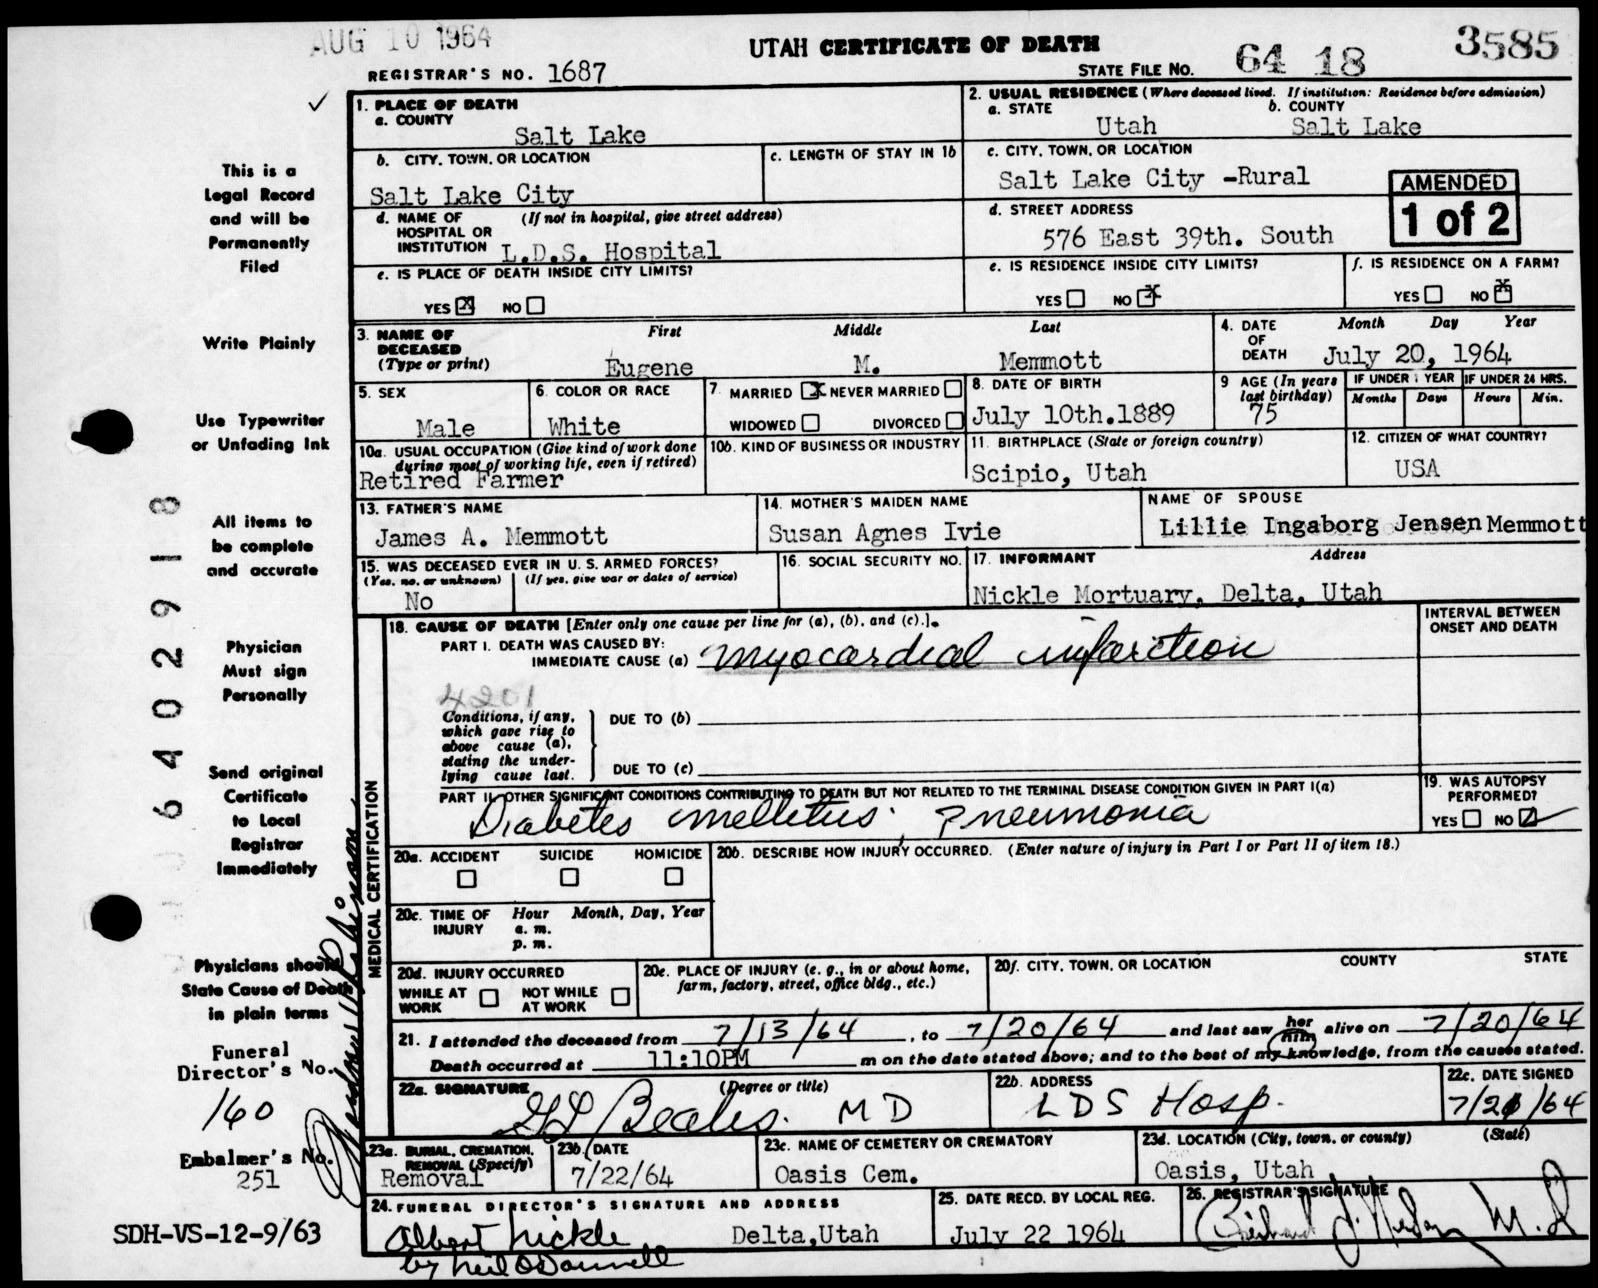 AUG 10 1964
UTAH CERTIFICATE OF DEATH
3585
REGISTRAR'S NO. 1687
STATE FILE NO. 64 18
1. PLACE OF DEATH
a. COUNTY
Salt Lake
2. USUAL RESIDENCE (Where deceased lived. If institution: Residence before admission)
a. STATE b. COUNTY
Utah Salt Lake
b. CITY, TOWN, OR LOCATION
Salt Lake City
c. LENGTH OF STAY IN 1b
c. CITY, TOWN, OR LOCATION
Salt Lake City -Rural
AMENDED
1 of 2
d. NAME OF HOSPITAL OR INSTITUTION (If not in hospital, give street address)
L.D.S. Hospital
d. STREET ADDRESS
576 East 39th. South
e. IS PLACE OF DEATH INSIDE CITY LIMITS?
YES X NO
e. IS RESIDENCE INSIDE CITY LIMITS?
YES NO X
f. IS RESIDENCE ON A FARM?
YES NO X
3. NAME OF DECEASED (Type or print)
First Middle Last
Eugene M. Memmott
4. DATE OF DEATH
Month Day Year
July 20, 1964
5. SEX
Male
6. COLOR OR RACE
White
7. MARRIED X NEVER MARRIED
WIDOWED DIVORCED
8. DATE OF BIRTH
July 10th.1889
9 AGE (In years last birthday)
75
IF UNDER 1 YEAR
Months Days
IF UNDER 24 HRS.
Hours Min.
10a. USUAL OCCUPATION (Give kind of work done during most of working life, even if retired)
Retired Farmer
10b. KIND OF BUSINESS OR INDUSTRY
11. BIRTHPLACE (State or foreign country)
Scipio, Utah
12. CITIZEN OF WHAT COUNTRY?
USA
13. FATHER'S NAME
James A. Memmott
14. MOTHER'S MAIDEN NAME
Susan Agnes Ivie
NAME OF SPOUSE
Lillie Ingaborg Jensen Memmott
15. WAS DECEASED EVER IN U. S. ARMED FORCES?
(Yes, no, or unknown) (If yes, give war or dates of service)
No
16. SOCIAL SECURITY NO.
17. INFORMANT Address
Nickle Mortuary, Delta, Utah
MEDICAL CERTIFICATION
18. CAUSE OF DEATH [Enter only one cause per line for (a), (b), and (c).]
INTERVAL BETWEEN ONSET AND DEATH
PART I. DEATH WAS CAUSED BY:
IMMEDIATE CAUSE (a) myocardial infarction
4201
Conditions, if any, which gave rise to above cause (a), stating the underlying cause last.
DUE TO (b)
DUE TO (c)
PART II. OTHER SIGNIFICANT CONDITIONS CONTRIBUTING TO DEATH BUT NOT RELATED TO THE TERMINAL DISEASE CONDITION GIVEN IN PART I(a)
Diabetes mellitus; pneumonia
19. WAS AUTOPSY PERFORMED?
YES NO
20a. ACCIDENT SUICIDE HOMICIDE
20b. DESCRIBE HOW INJURY OCCURRED. (Enter nature of injury in Part I or Part II of item 18.)
20c. TIME OF INJURY Hour Month, Day, Year
a. m.
p. m.
20d. INJURY OCCURRED
WHILE AT WORK NOT WHILE AT WORK
20e. PLACE OF INJURY (e. g., in or about home, farm, factory, street, office bldg., etc.)
20f. CITY, TOWN, OR LOCATION COUNTY STATE
21. I attended the deceased from 7/13/64, to 7/20/64 and last saw her him alive on 7/20/64
Death occurred at 11:10PM m on the date stated above; and to the best of my knowledge, from the causes stated.
22a. SIGNATURE (Degree or title)
Beales. MD
22b. ADDRESS
LDS Hosp.
22c. DATE SIGNED
7/21/64
23a. BURIAL, CREMATION, REMOVAL (Specify)
Removal
23b. DATE
7/22/64
23c. NAME OF CEMETERY OR CREMATORY
Oasis Cem.
23d. LOCATION (City, town, or county) (State)
Oasis, Utah
24. FUNERAL DIRECTOR'S SIGNATURE AND ADDRESS
Albert Nickle Delta,Utah
by Neil O'Donnell
25. DATE RECD. BY LOCAL REG.
July 22 1964
26. REGISTRAR'S SIGNATURE
M.D
This is a
Legal Record
and will be
Permanently
Filed
Write Plainly
Use Typewriter
or Unfading Ink
All items to
be complete
and accurate
Physician
Must sign
Personally
Send original
Certificate
to Local
Registrar
Immediately
Physicians should
State Cause of Death
in plain terms
Funeral
Director's No.
160
Embalmer's No.
251
SDH-VS-12-9/63
64029 18